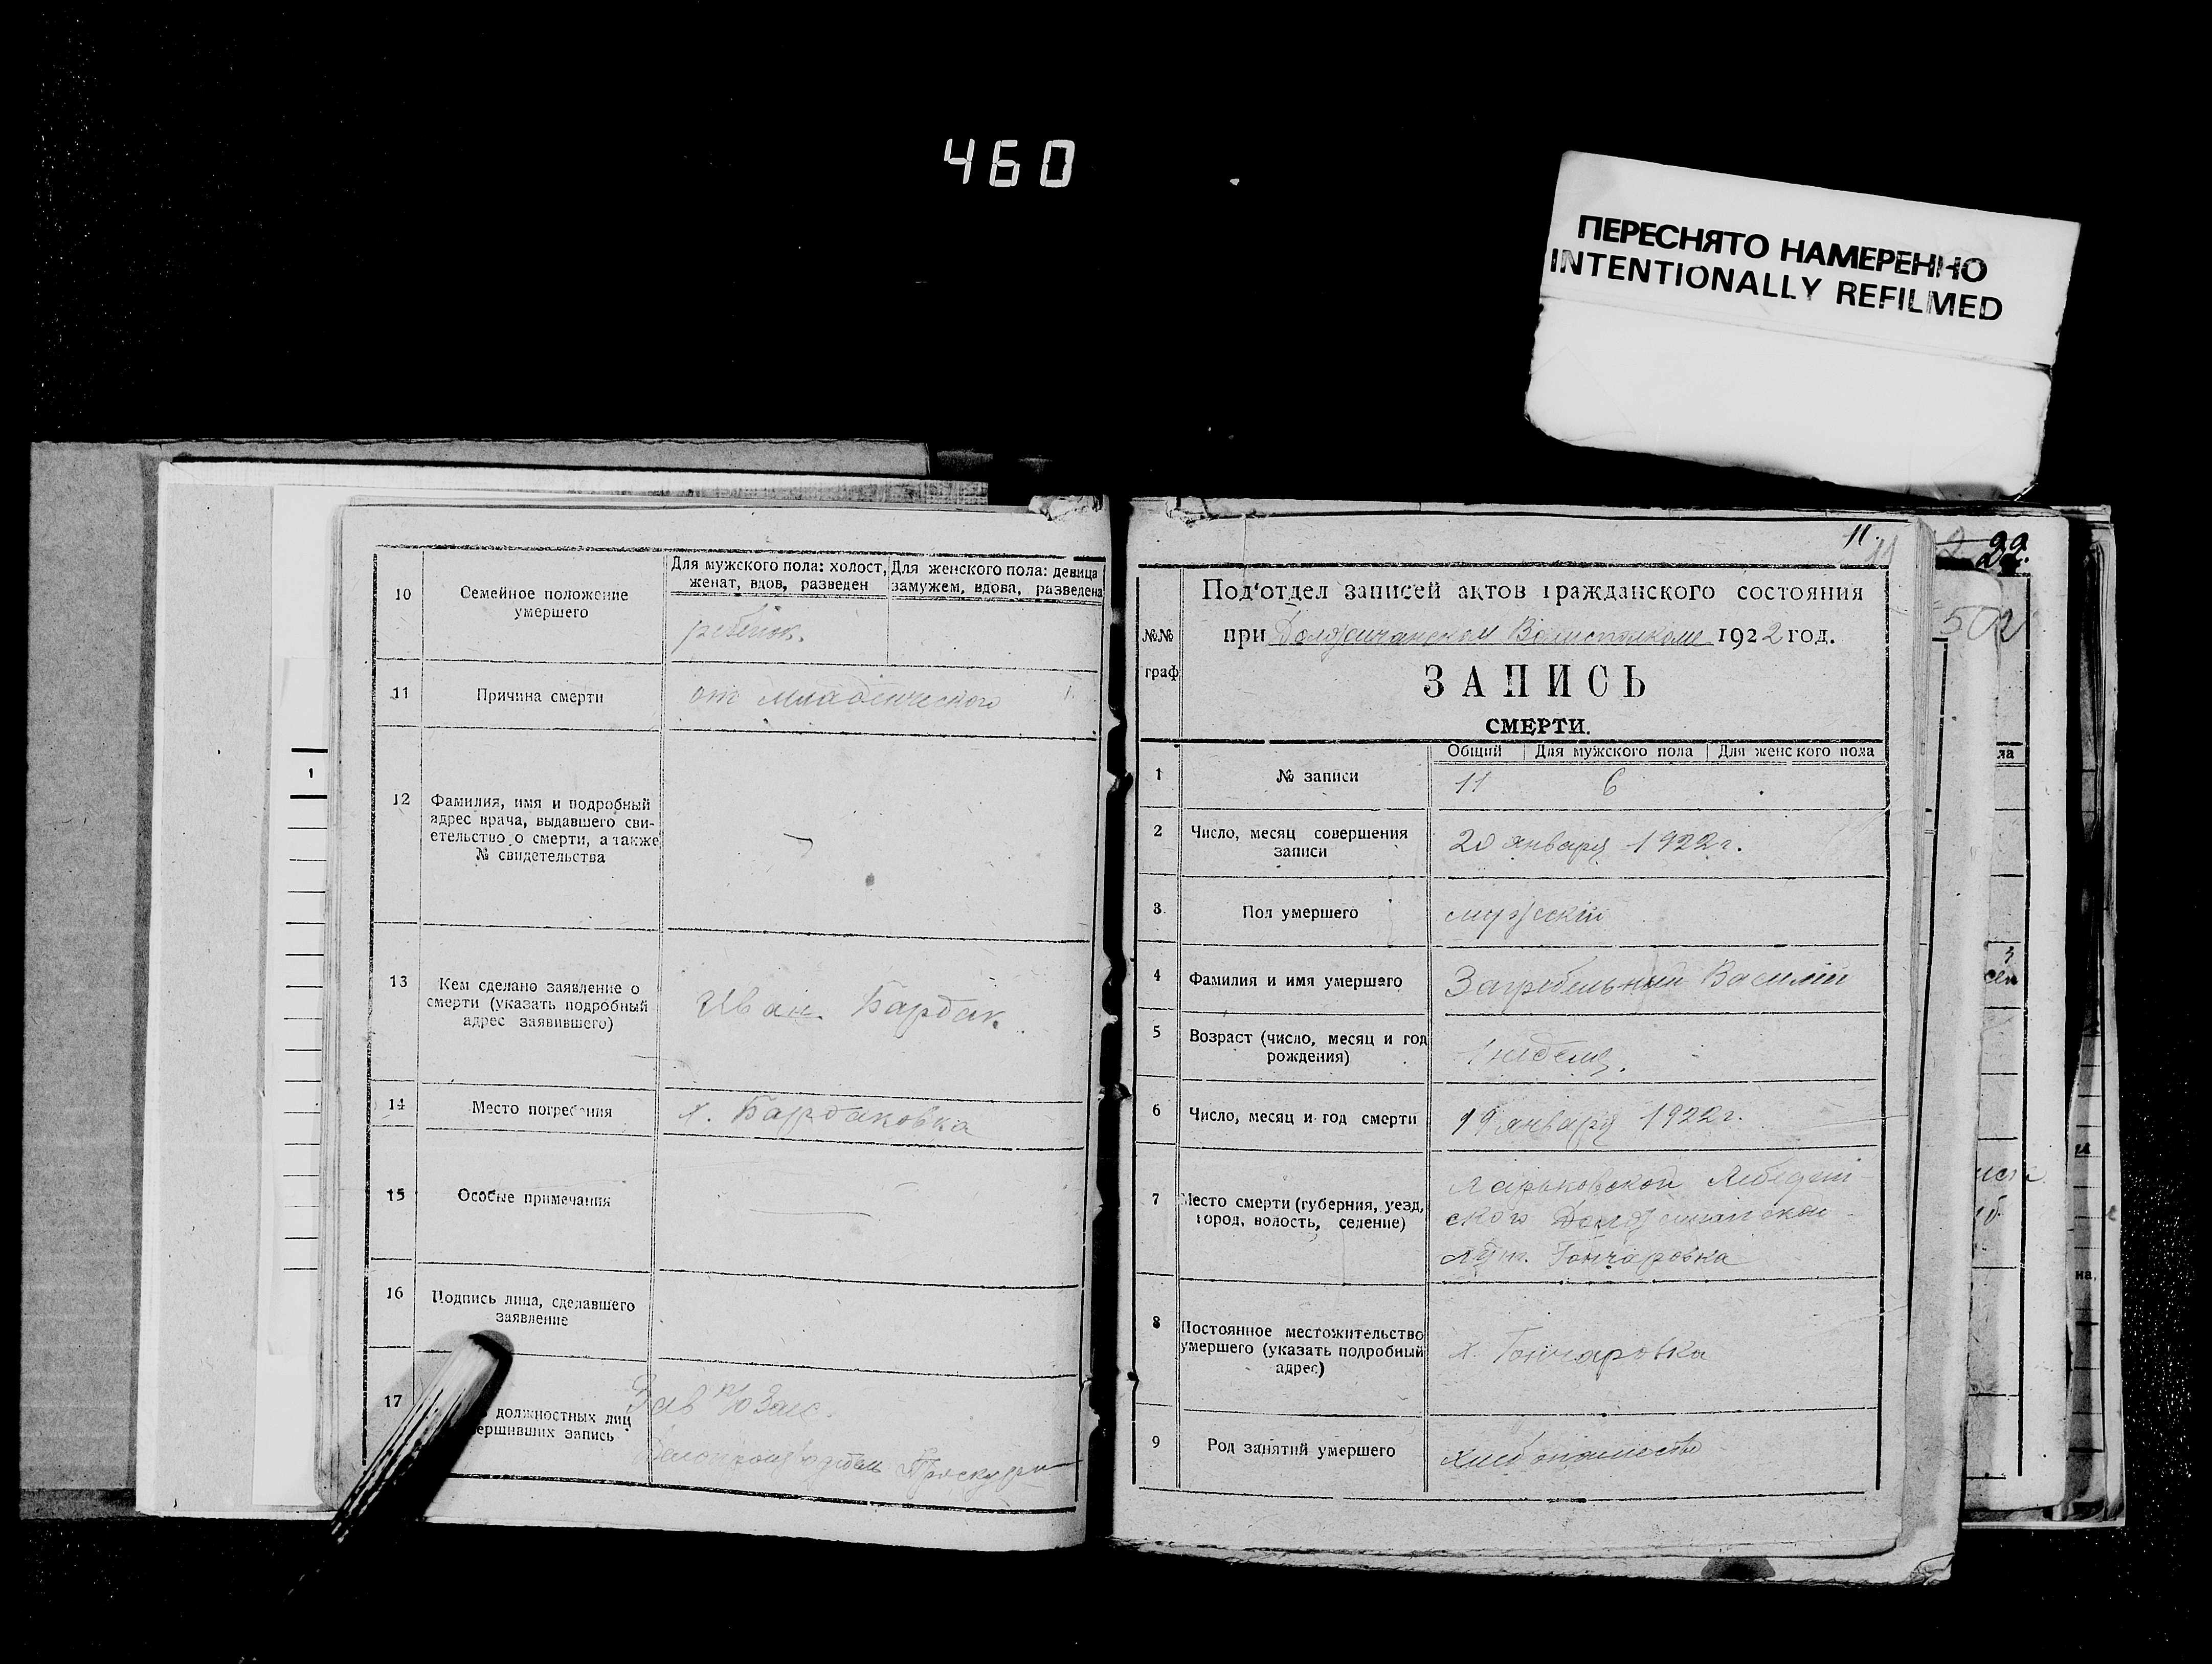 460
ПЕРЕСНЯТО НАМЕРЕННО
INTENTIONALLY REFILMED
10
Семейное положение
умершего
Для мужского пола: холост,
женат, вдов, разведен
Для женского пола: девица
замужем, вдова, разведена
ребенок.
11
Причина смерти
от младенческого
12
Фамилия, имя и подробный
адрес врача, выдавшего сви-
етельство о смерти, а также
№ свидетельства
13
Кем сделано заявление о
смерти (указать подробный
адрес заявившего)
Иван. Бардак.
14
Место погребения
х. Бардаковка
15
Особые примечания
16
Подпись лица, сделавшего
заявление
17
должностных лиц
ершивших запись
Зав
Делопроизводитель
1
11.
11
Под'отдел записей актов гражданского состояния
при Волисполкоме 1922 год.
№№
граф
ЗАПИСЬ
СМЕРТИ.
Общий Для мужского пола Для женского пола
1
№ записи
11 6
2
Число, месяц совершения
записи
20 января 1922 г.
3
Пол умершего
мужскій
4
Фамилия и имя умершего
Загребельный Василій
5
Возраст (число, месяц и год
рождения)
1 неделя.
6
Число, месяц и год смерти
19 января 1922 г.
7
Место смерти (губерния, уезд,
город, волость, селение)
Харьковской Лебедин-
ского
хут. Гончаровка
8
Постоянное местожительство
умершего (указать подробный
адрес)
х. Гончаровка
9
Род занятий умершего
22.
502
ла
на,